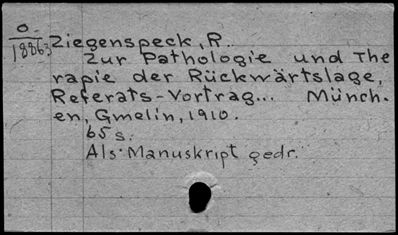 O.
18863
Ziegenspeck, R..
Zur Pathologie und The
rapie der Rückwärtslage,
Referats-Vortrag... Münch.
en, Gmelin, 1910.
65 s.
Als Manuskript gedr.